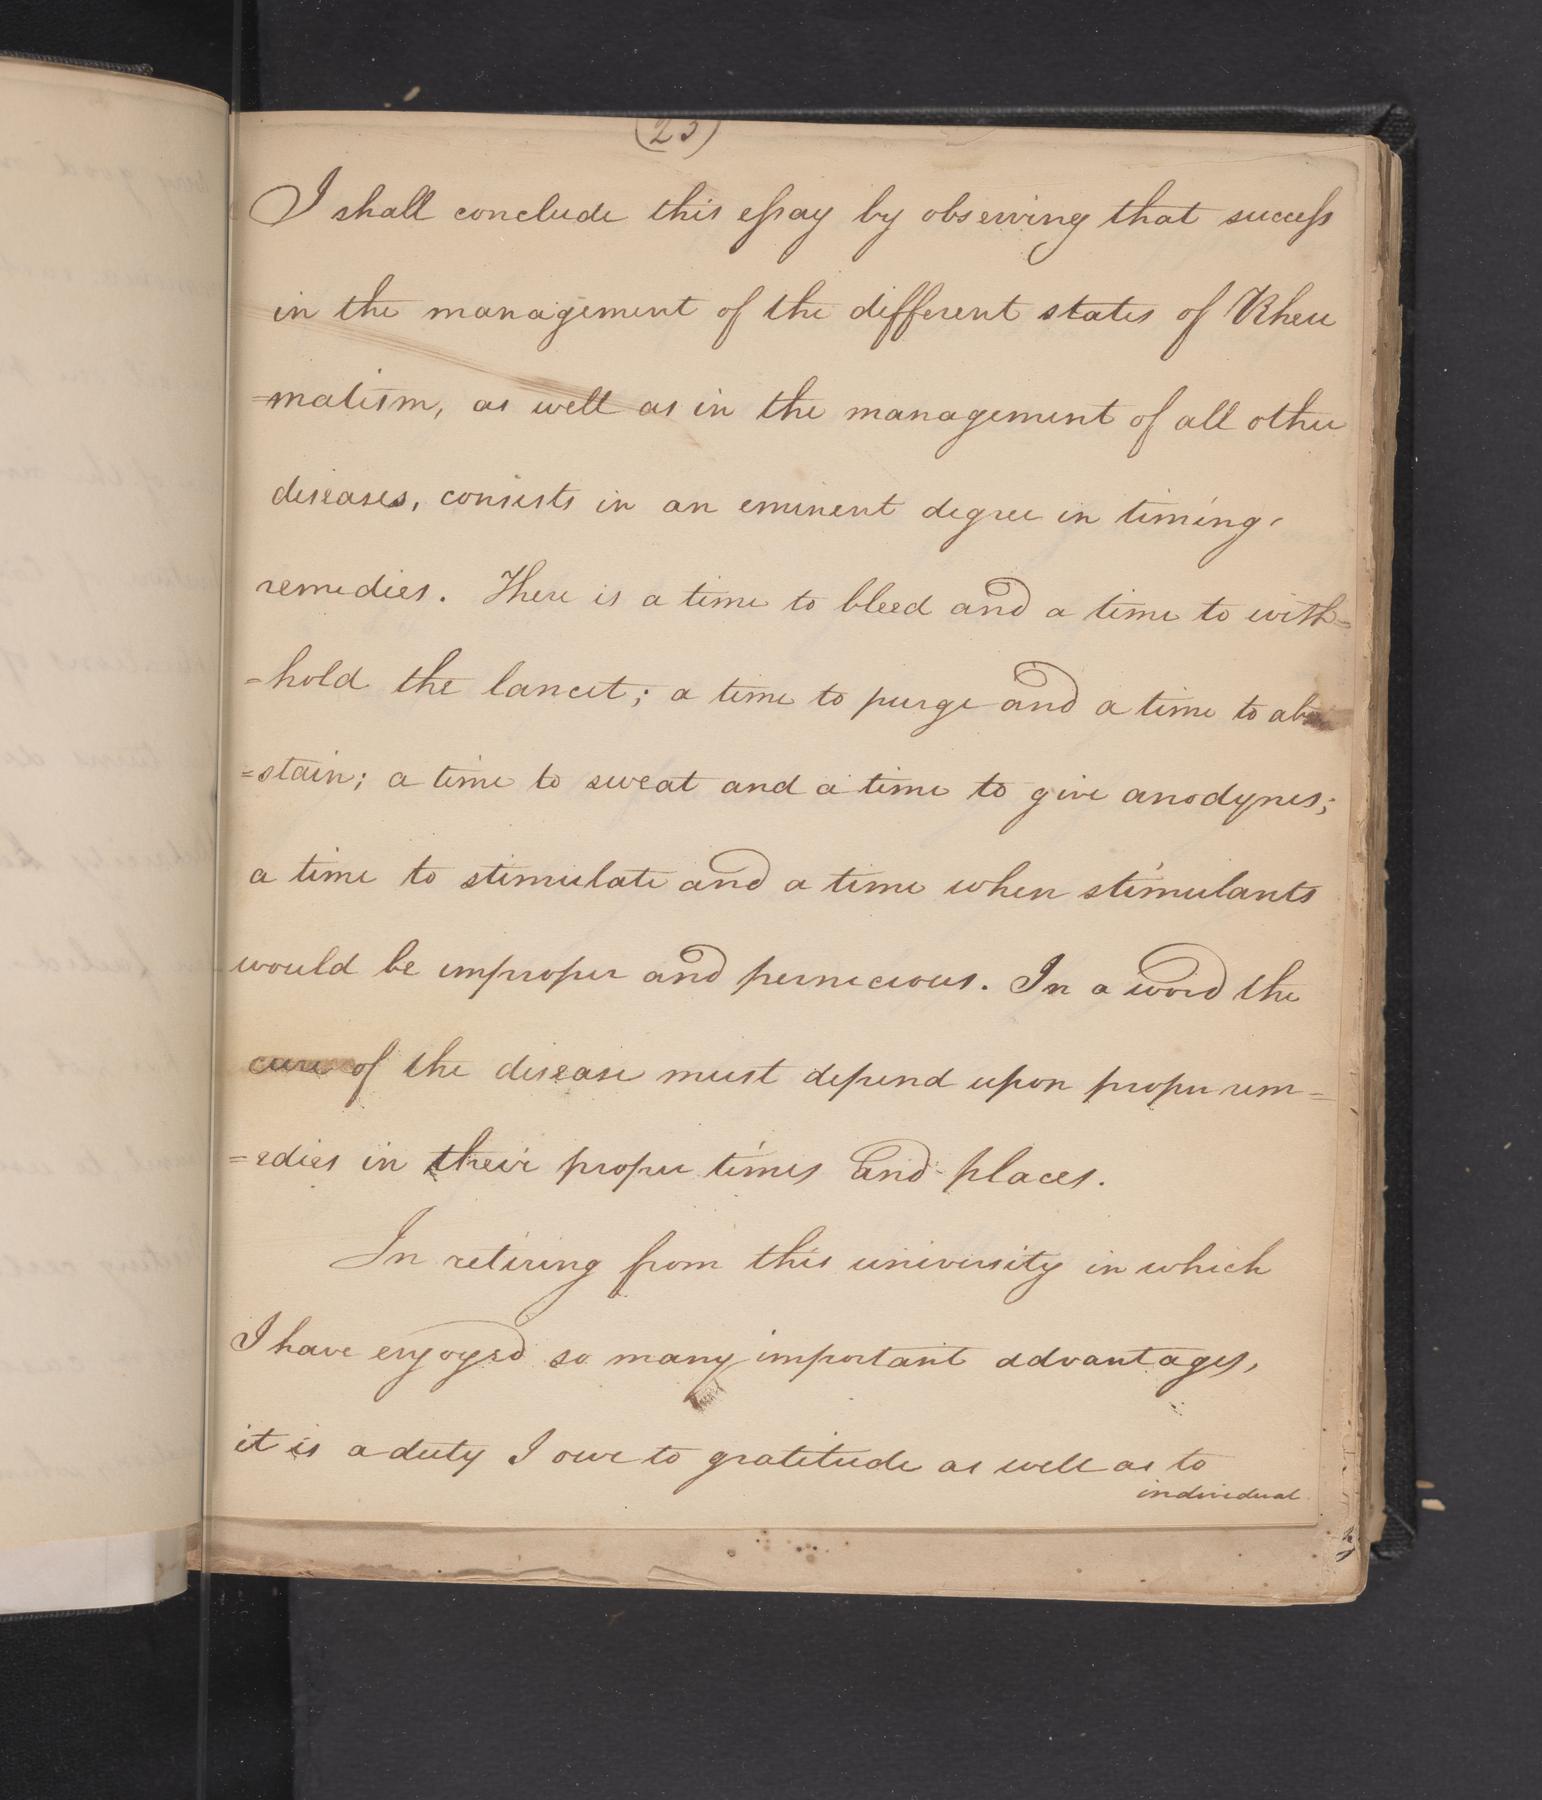 (23)
I shall conclude this eſsay by observing that succeſs
in the management of the different states of Rheu
=matism, as well as in the management of all other
diseases, consists in an eminent degree in timing
remedies. There is a time to bleed and a time to with=
=hold the lancet; a time to purge and a time to ab
=stain; a time to sweat and a time to give anodynes;
a time to stimulate and a time when stimulants
would be improper and pernicious. In a word the
cure of the disease must depend upon proper rem=
=edies in their proper times and places.
In retiring from this university in which
I have enjoyed so many important advantages,
it is a duty I owe to gratitude as well as to
individual